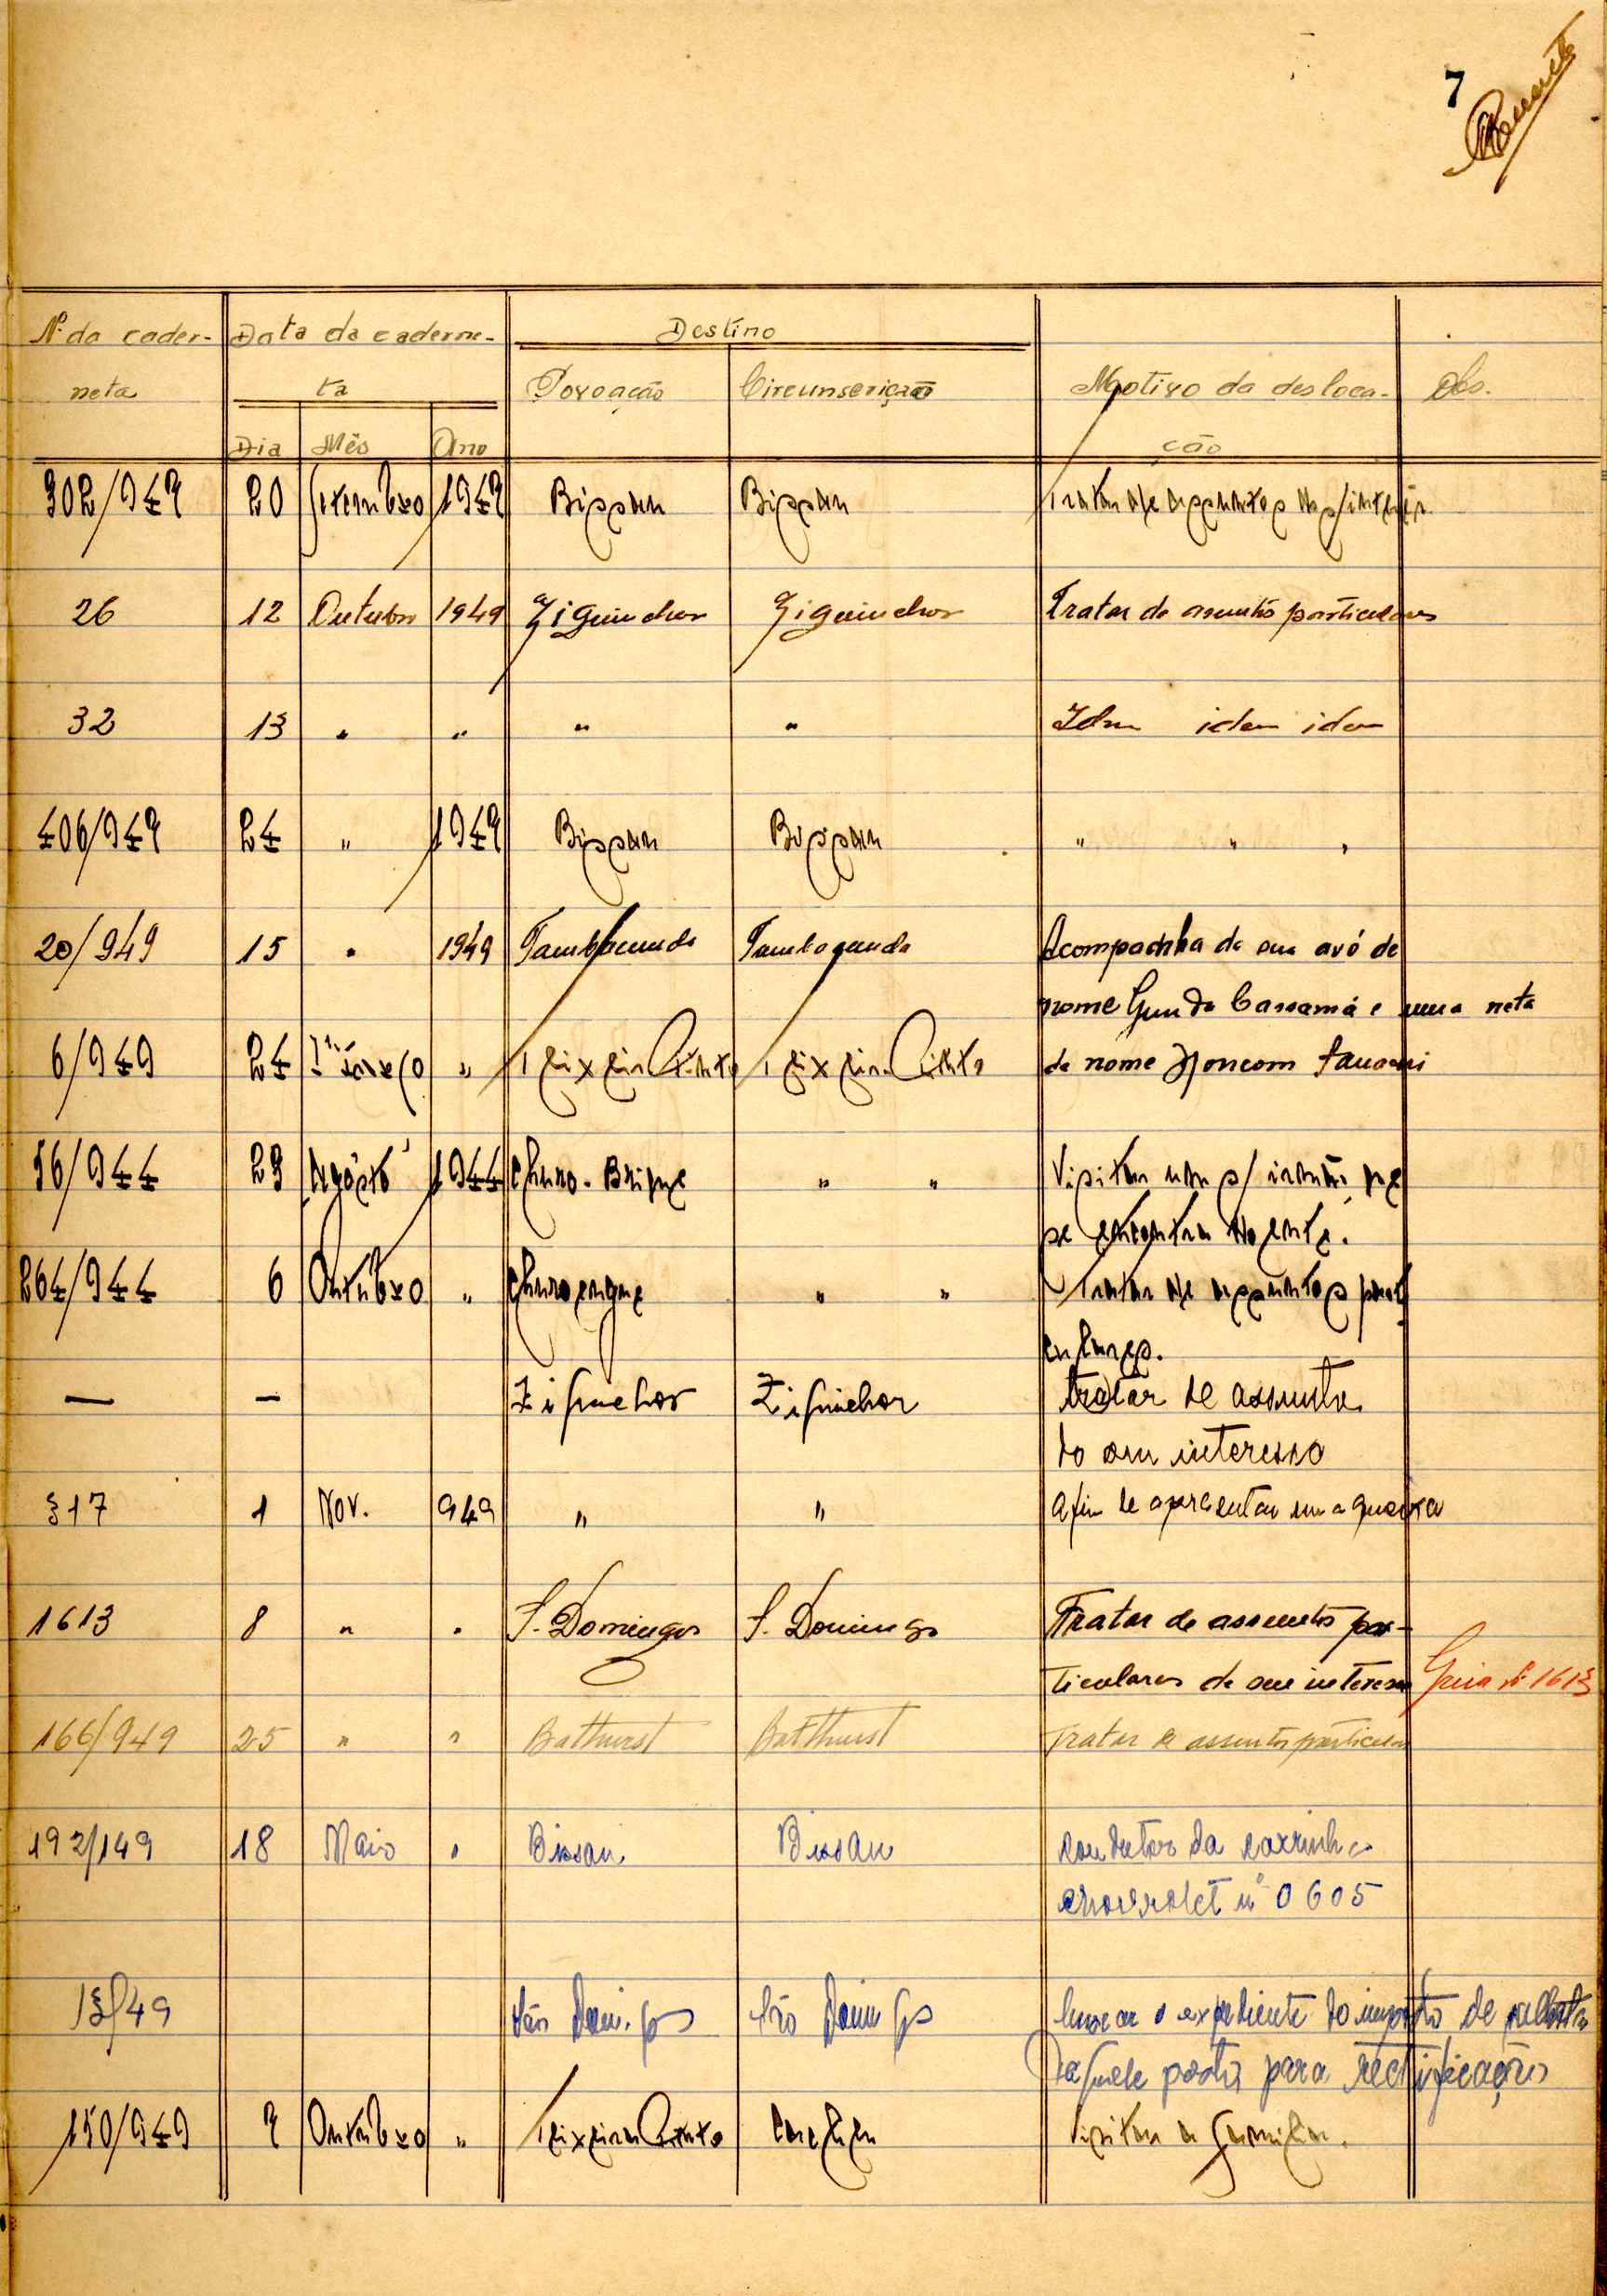 7
Nº da cader- Data da caderne- Destino
neta ta Povoação Circunscrição Motivo da desloca- Obs.
Dia Mês Ano ção
302/949 20 Setembro 1949 Bissau Bissau Tratar de assuntos de s/
26 12 Outubro 1949 Ziguinchor Ziguinchor Tratar de assuntos particulares
32 13 " " " " Idem idem idem
406/949 24 " 1949 Bissau Bissau " " "
20/949 15 " 1949 Tambacunda Tambacunda Acompanha de sua avó de
nome Cassamá e uma neta
6/949 24 Março " Teixeira Pinto Teixeira Pinto de nome
56/944 29 Agosto 1944 " " Visitar uma s/ irmã que
se encontra doente.
264/944 6 Outubro " " " Tratar de assuntos parti
culares.
— — Ziguinchor Ziguinchor tratar de assunto
do seu interesse
317 1 Nov. 949 " " afim de apresentar uma queixa
1613 8 " " S. Domingos S. Domingos Tratar de assuntos par-
ticulares de seu interesse Guia nº 1613
166/949 25 " " Bathurst Bathurst Tratar de assuntos particular
192/149 18 Maio " Bissau Bissau condutor da carrinha
chevrolet nº 0605
13/49 São Domingos São Domingos buscar o expediente do imposto de palhota
daquele posto para rectificações
150/949 9 Outubro " Teixeira Pinto Cacheu Visitar a familia.